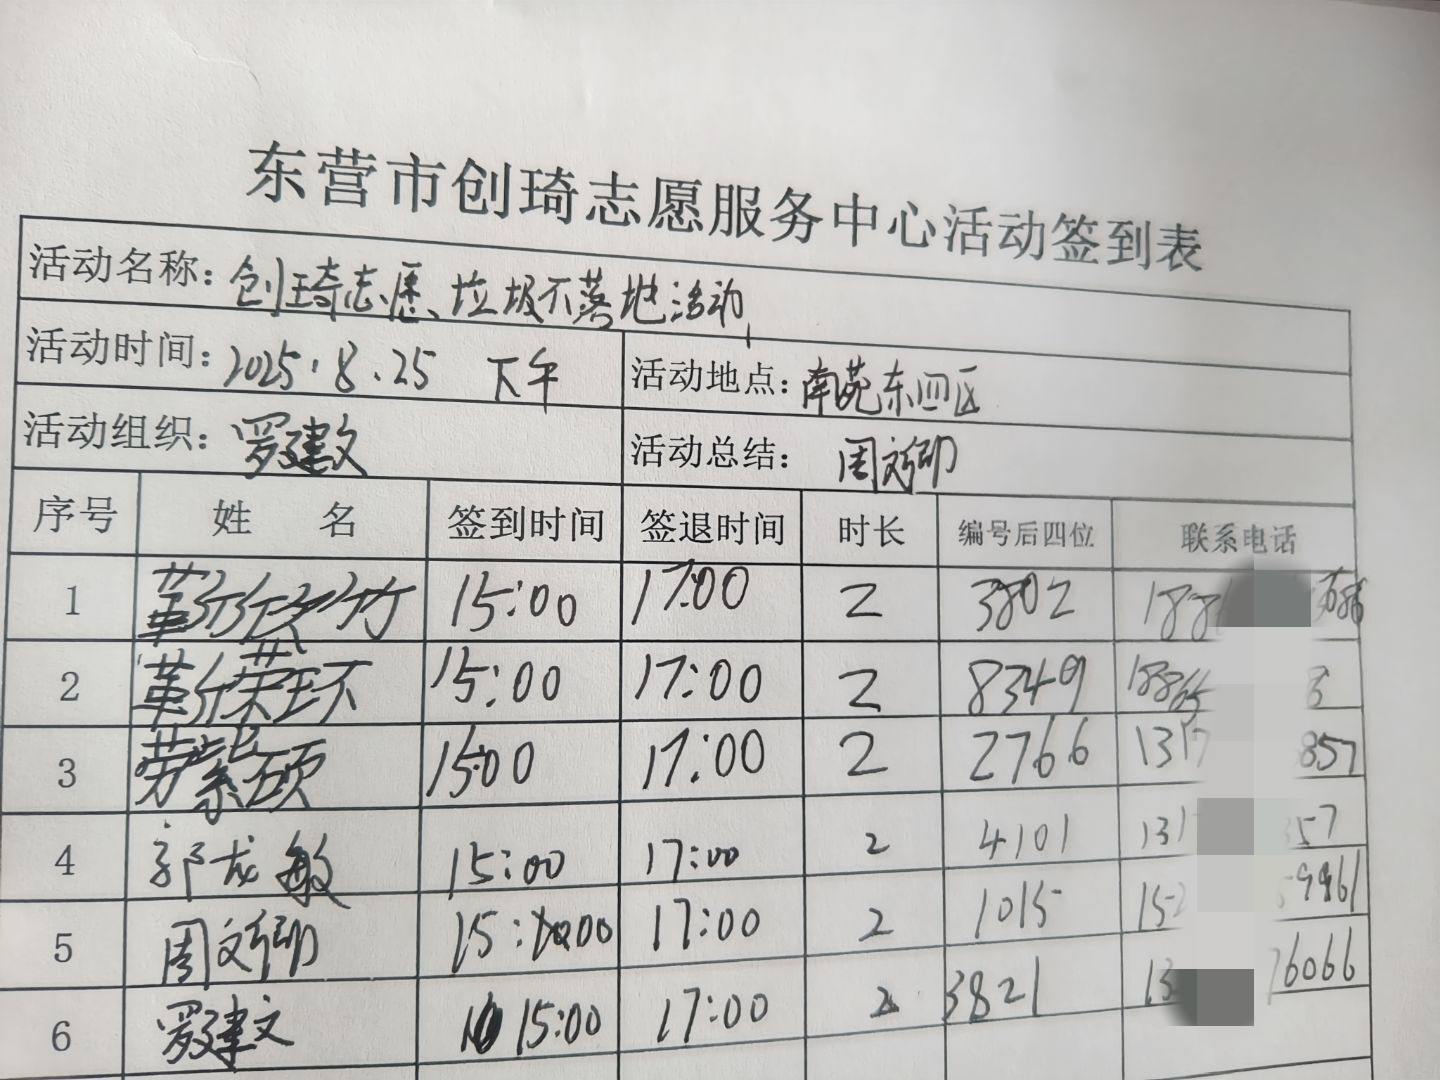 东营市创琦志愿服务中心活动签到表
活动名称：创琦志愿、垃圾不落地活动
活动时间：2025.8.25 下午 活动地点：南苑东四区
活动组织：罗建文 活动总结：周文卿
序号 姓名 签到时间 签退时间 时长 编号后四位 联系电话
1 15:00 17:00 2 3802 188
2 15:00 17:00 2 8349 18864
3 15:00 17:00 2 2766 131 857
4 郭龙敏 15:00 17:00 2 4101 131 357
5 周文卿 15:00 17:00 2 1015 152 59961
6 罗建文 15:00 17:00 2 3821 13 76066